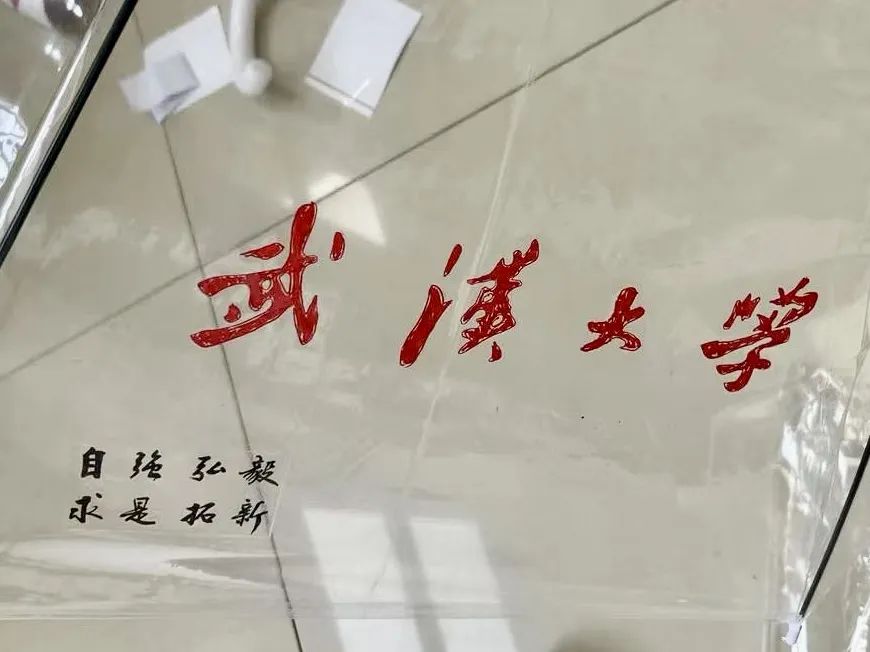 武漢大学
自强弘毅
求是拓新